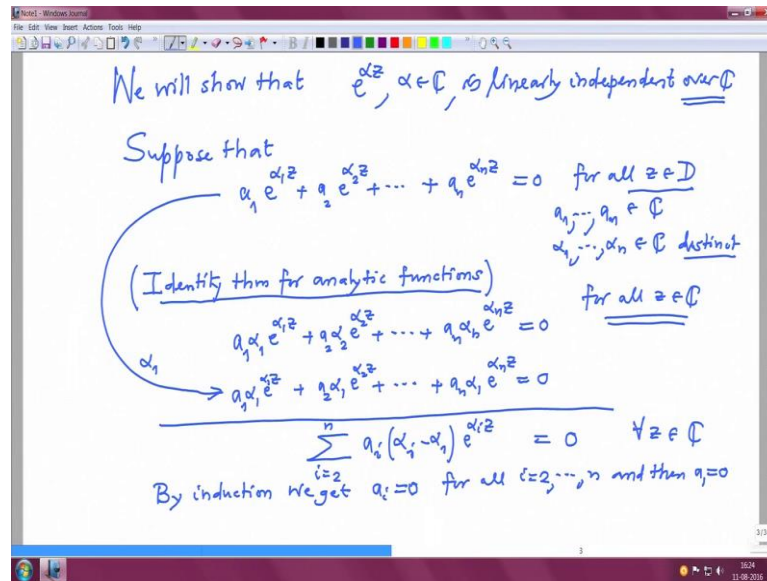 Note1 - Windows Journal
File Edit View Insert Actions Tools Help
We will show that e^{αz}, α ∈ ℂ, is linearly independent over ℂ
Suppose that
a_1 e^{α_1 z} + a_2 e^{α_2 z} + ... + a_n e^{α_n z} = 0 for all z ∈ D
a_1, ..., a_n ∈ ℂ
α_1, ..., α_n ∈ ℂ distinct
(Identity thm for analytic functions) for all z ∈ ℂ
a_1 α_1 e^{α_1 z} + a_2 α_2 e^{α_2 z} + ... + a_n α_n e^{α_n z} = 0
α_1
a_1 α_1 e^{α_1 z} + a_2 α_1 e^{α_2 z} + ... + a_n α_1 e^{α_n z} = 0
∑_{i=2}^{n} a_i (α_i - α_1) e^{α_i z} = 0 ∀ z ∈ ℂ
By induction we get a_i = 0 for all i = 2, ..., n and then a_1 = 0
3/3
3
16:24
11-08-2016